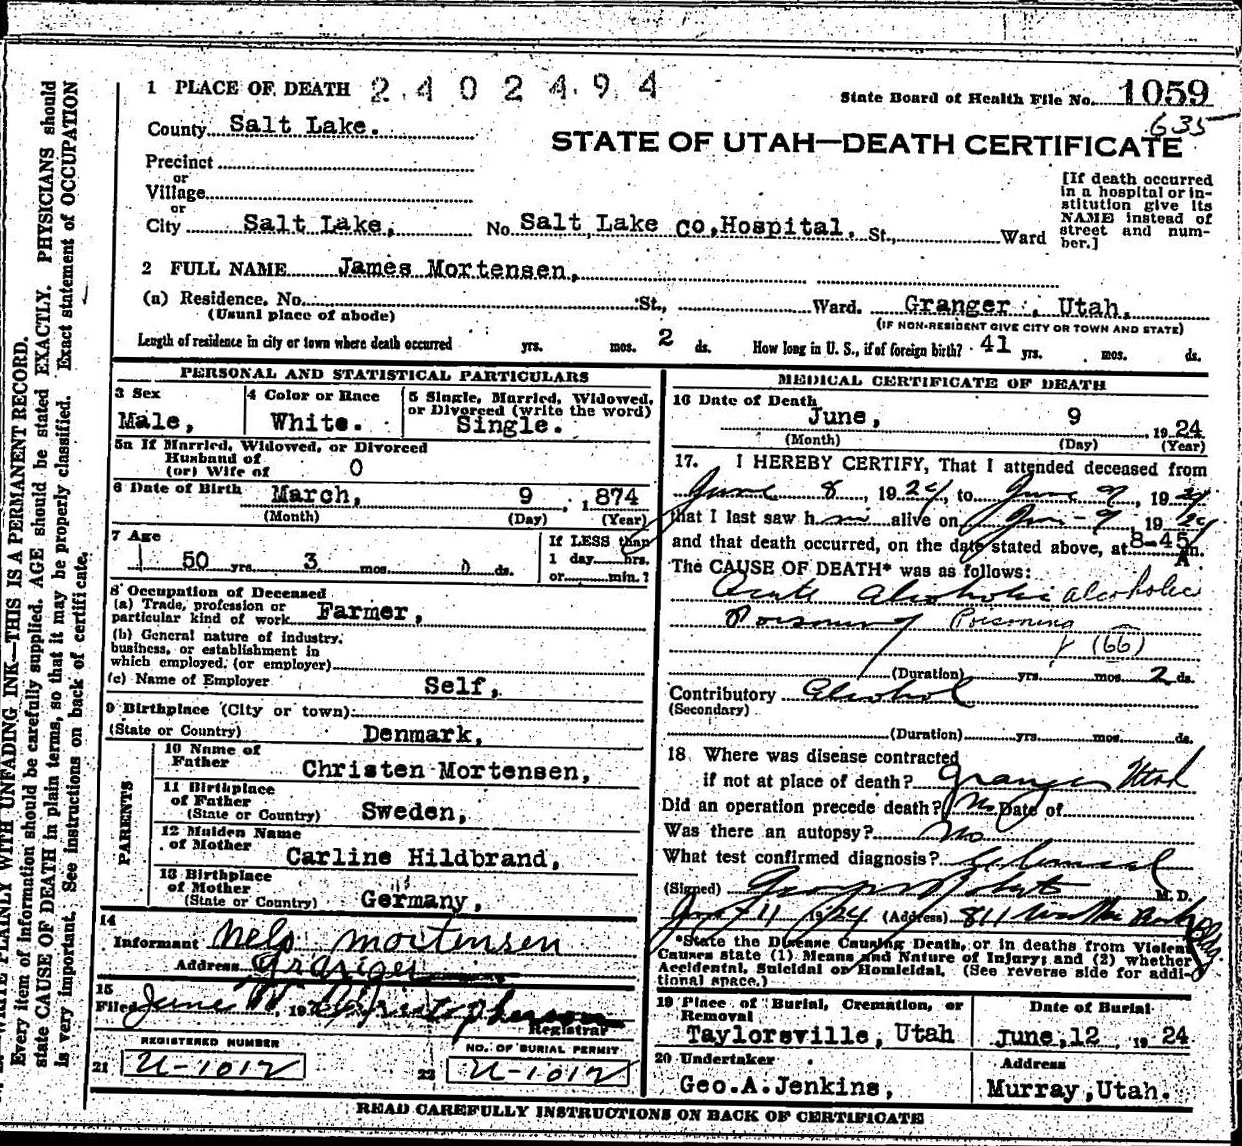 1 PLACE OF DEATH 2402494
State Board of Health File No. 1059
635
County Salt Lake.
STATE OF UTAH—DEATH CERTIFICATE
Precinct
or
Village
or
City Salt Lake, No. Salt Lake Co. Hospital. St., Ward
[If death occurred
in a hospital or in-
stitution give its
NAME instead of
street and num-
ber.]
2 FULL NAME James Mortensen,
(a) Residence. No. St., Ward. Granger, Utah,
(Usual place of abode) (IF NON-RESIDENT GIVE CITY OR TOWN AND STATE)
Length of residence in city or town where death occurred yrs. mos. 2 ds. How long in U. S., if of foreign birth? 41 yrs. mos. ds.
PERSONAL AND STATISTICAL PARTICULARS
3 Sex
Male,
4 Color or Race
White.
5 Single, Married, Widowed,
or Divorced (write the word)
Single.
5a If Married, Widowed, or Divorced
Husband of
(or) Wife of 0
6 Date of Birth March, 9, 1874
(Month) (Day) (Year)
7 Age
50 yrs. 3 mos. 0 ds.
If LESS than
1 day hrs.
or min.?
8 Occupation of Deceased
(a) Trade, profession or
particular kind of work Farmer,
(b) General nature of industry.
business, or establishment in
which employed. (or employer)
(c) Name of Employer Self,
9 Birthplace (City or town):
(State or Country) Denmark,
PARENTS
10 Name of
Father Christen Mortensen,
11 Birthplace
of Father
(State or Country) Sweden,
12 Maiden Name
of Mother Carline Hildbrand,
13 Birthplace
of Mother
(State or Country) Germany,
14
Informant Nels Mortensen
Address Granger
15
Filed June 19 Christopherson
Registrar
REGISTERED NUMBER
21 U-1012
NO. OF BURIAL PERMIT
22 U-1012
MEDICAL CERTIFICATE OF DEATH
16 Date of Death
June, 9, 1924
(Month) (Day) (Year)
17. I HEREBY CERTIFY, That I attended deceased from
June 8, 1924, to June 9, 1924
that I last saw him alive on Jun-9, 1924
and that death occurred, on the date stated above, at 8-45 A m.
The CAUSE OF DEATH* was as follows:
Acute Alcoholic alcoholic
Poisoning Poisoning
(66)
(Duration) yrs. mos. 2 ds.
Contributory Alcohol
(Secondary)
(Duration) yrs. mos. ds.
18 Where was disease contracted
if not at place of death? Granger Utah
Did an operation precede death? No Date of
Was there an autopsy? No
What test confirmed diagnosis? Clinical
(Signed) M.D.
11 1924 (Address) 811 Bldg.
*State the Disease Causing Death, or in deaths from Violent
Causes state (1) Means and Nature of Injury; and (2) whether
Accidental, Suicidal or Homicidal. (See reverse side for addi-
tional space.)
19 Place of Burial, Cremation, or
Removal
Taylorsville, Utah
Date of Burial
June, 12, 1924.
20 Undertaker
Geo.A.Jenkins,
Address
Murray, Utah.
READ CAREFULLY INSTRUCTIONS ON BACK OF CERTIFICATE
WRITE PLAINLY WITH UNFADING INK—THIS IS A PERMANENT RECORD.
Every item of information should be carefully supplied. AGE should be stated EXACTLY. PHYSICIANS should
state CAUSE OF DEATH in plain terms, so that it may be properly classified. Exact statement of OCCUPATION
is very important. See instructions on back of certificate.